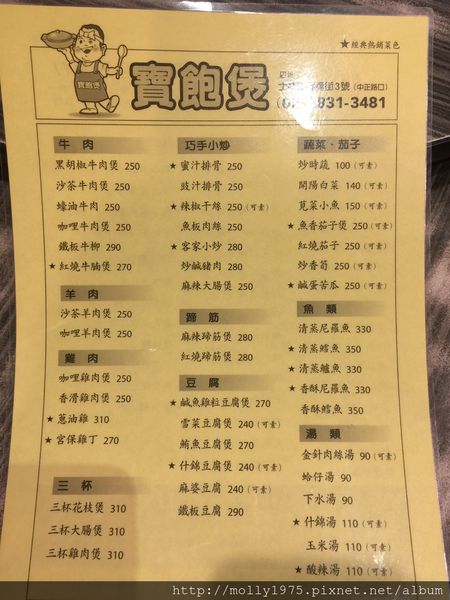 ★經典熱銷菜色
寶飽煲
寶飽煲
店址
3號(中正路口)
831-3481
牛肉
黑胡椒牛肉煲 250
沙茶牛肉煲 250
蠔油牛肉 250
咖哩牛肉煲 250
鐵板牛柳 290
★紅燒牛腩煲 270
羊肉
沙茶羊肉煲 250
咖哩羊肉煲 250
雞肉
咖哩雞肉煲 250
香滑雞肉煲 250
★蔥油雞 310
★宮保雞丁 270
三杯
三杯花枝煲 310
三杯大腸煲 310
三杯雞肉煲 310
巧手小炒
★蜜汁排骨 250
豉汁排骨 250
★辣椒干絲 250(可素)
魚板肉絲 250
★客家小炒 280
炒鹹豬肉 280
麻辣大腸煲 250
蹄筋
麻辣蹄筋煲 280
紅燒蹄筋煲 280
豆腐
★鹹魚雞粒豆腐煲 270
雪菜豆腐煲 240(可素)
鮪魚豆腐煲 270
★什錦豆腐煲 240(可素)
麻婆豆腐 240(可素)
鐵板豆腐 290
蔬菜、茄子
炒時蔬 100(可素)
開陽白菜 140(可素)
莧菜小魚 150(可素)
★魚香茄子煲 250(可素)
紅燒茄子 250(可素)
炒香筍 250(可素)
★鹹蛋苦瓜 250(可素)
魚類
清蒸尼羅魚 330
★清蒸鱈魚 350
★清蒸鱸魚 350
★香酥尼羅魚 330
香酥鱈魚 350
湯類
金針肉絲湯 90(可素)
蛤仔湯 90
下水湯 90
★什錦湯 110(可素)
玉米湯 110(可素)
★酸辣湯 110(可素)
http://molly1975.pixnet.net/album